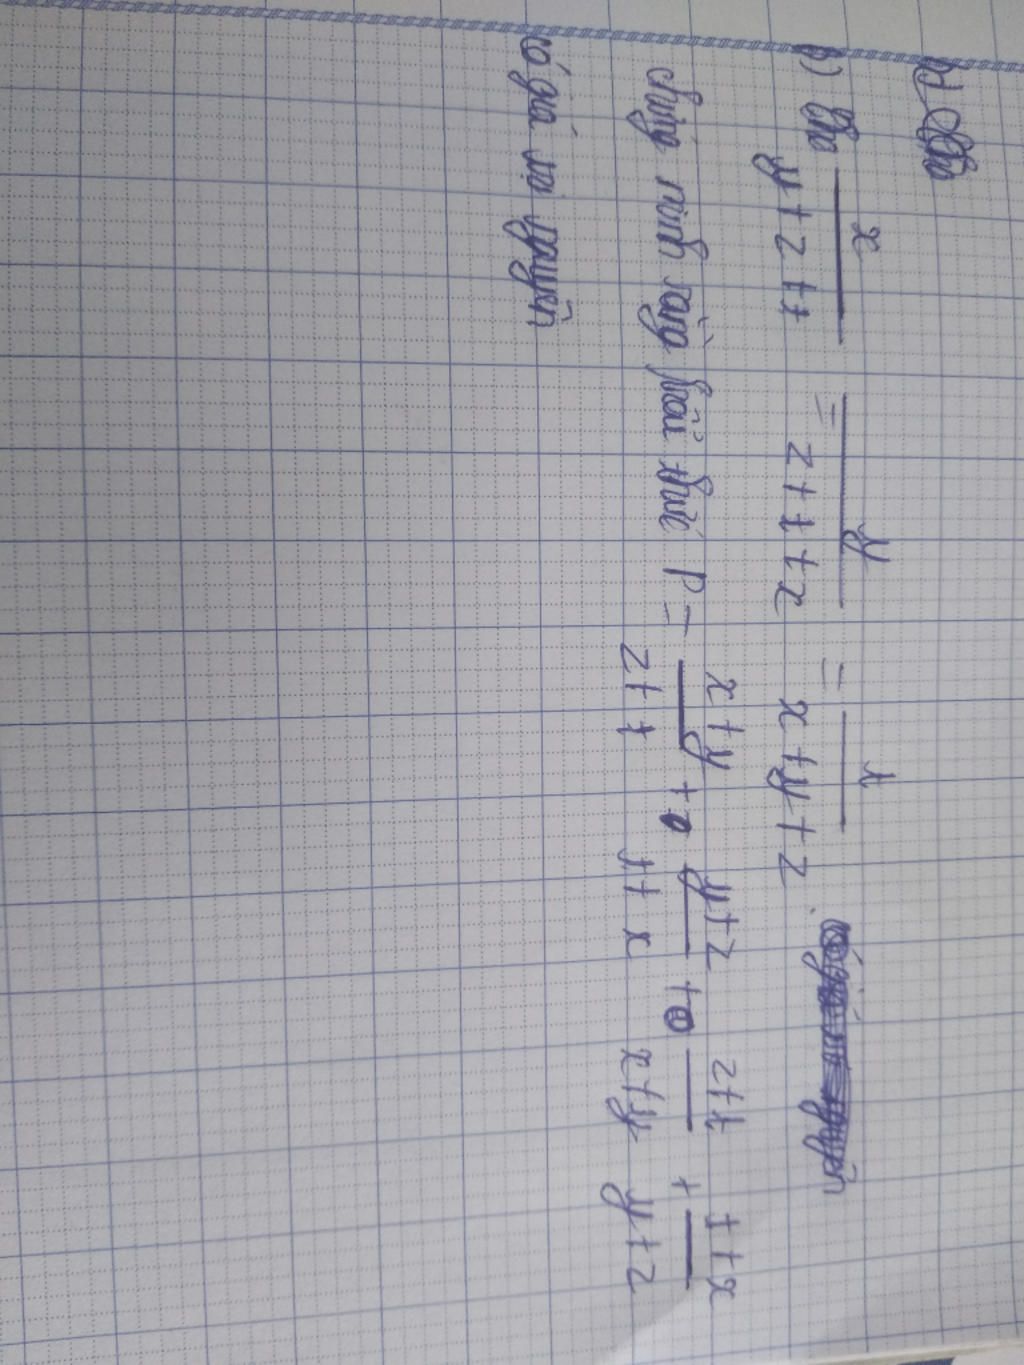 b) Cho x/(y+z+t) = y/(z+t+x) = t/(x+y+z).
chứng minh rằng biểu thức P = (x+y)/(z+t) + (y+z)/(t+x) + (z+t)/(x+y) + (t+x)/(y+z)
có giá trị nguyên